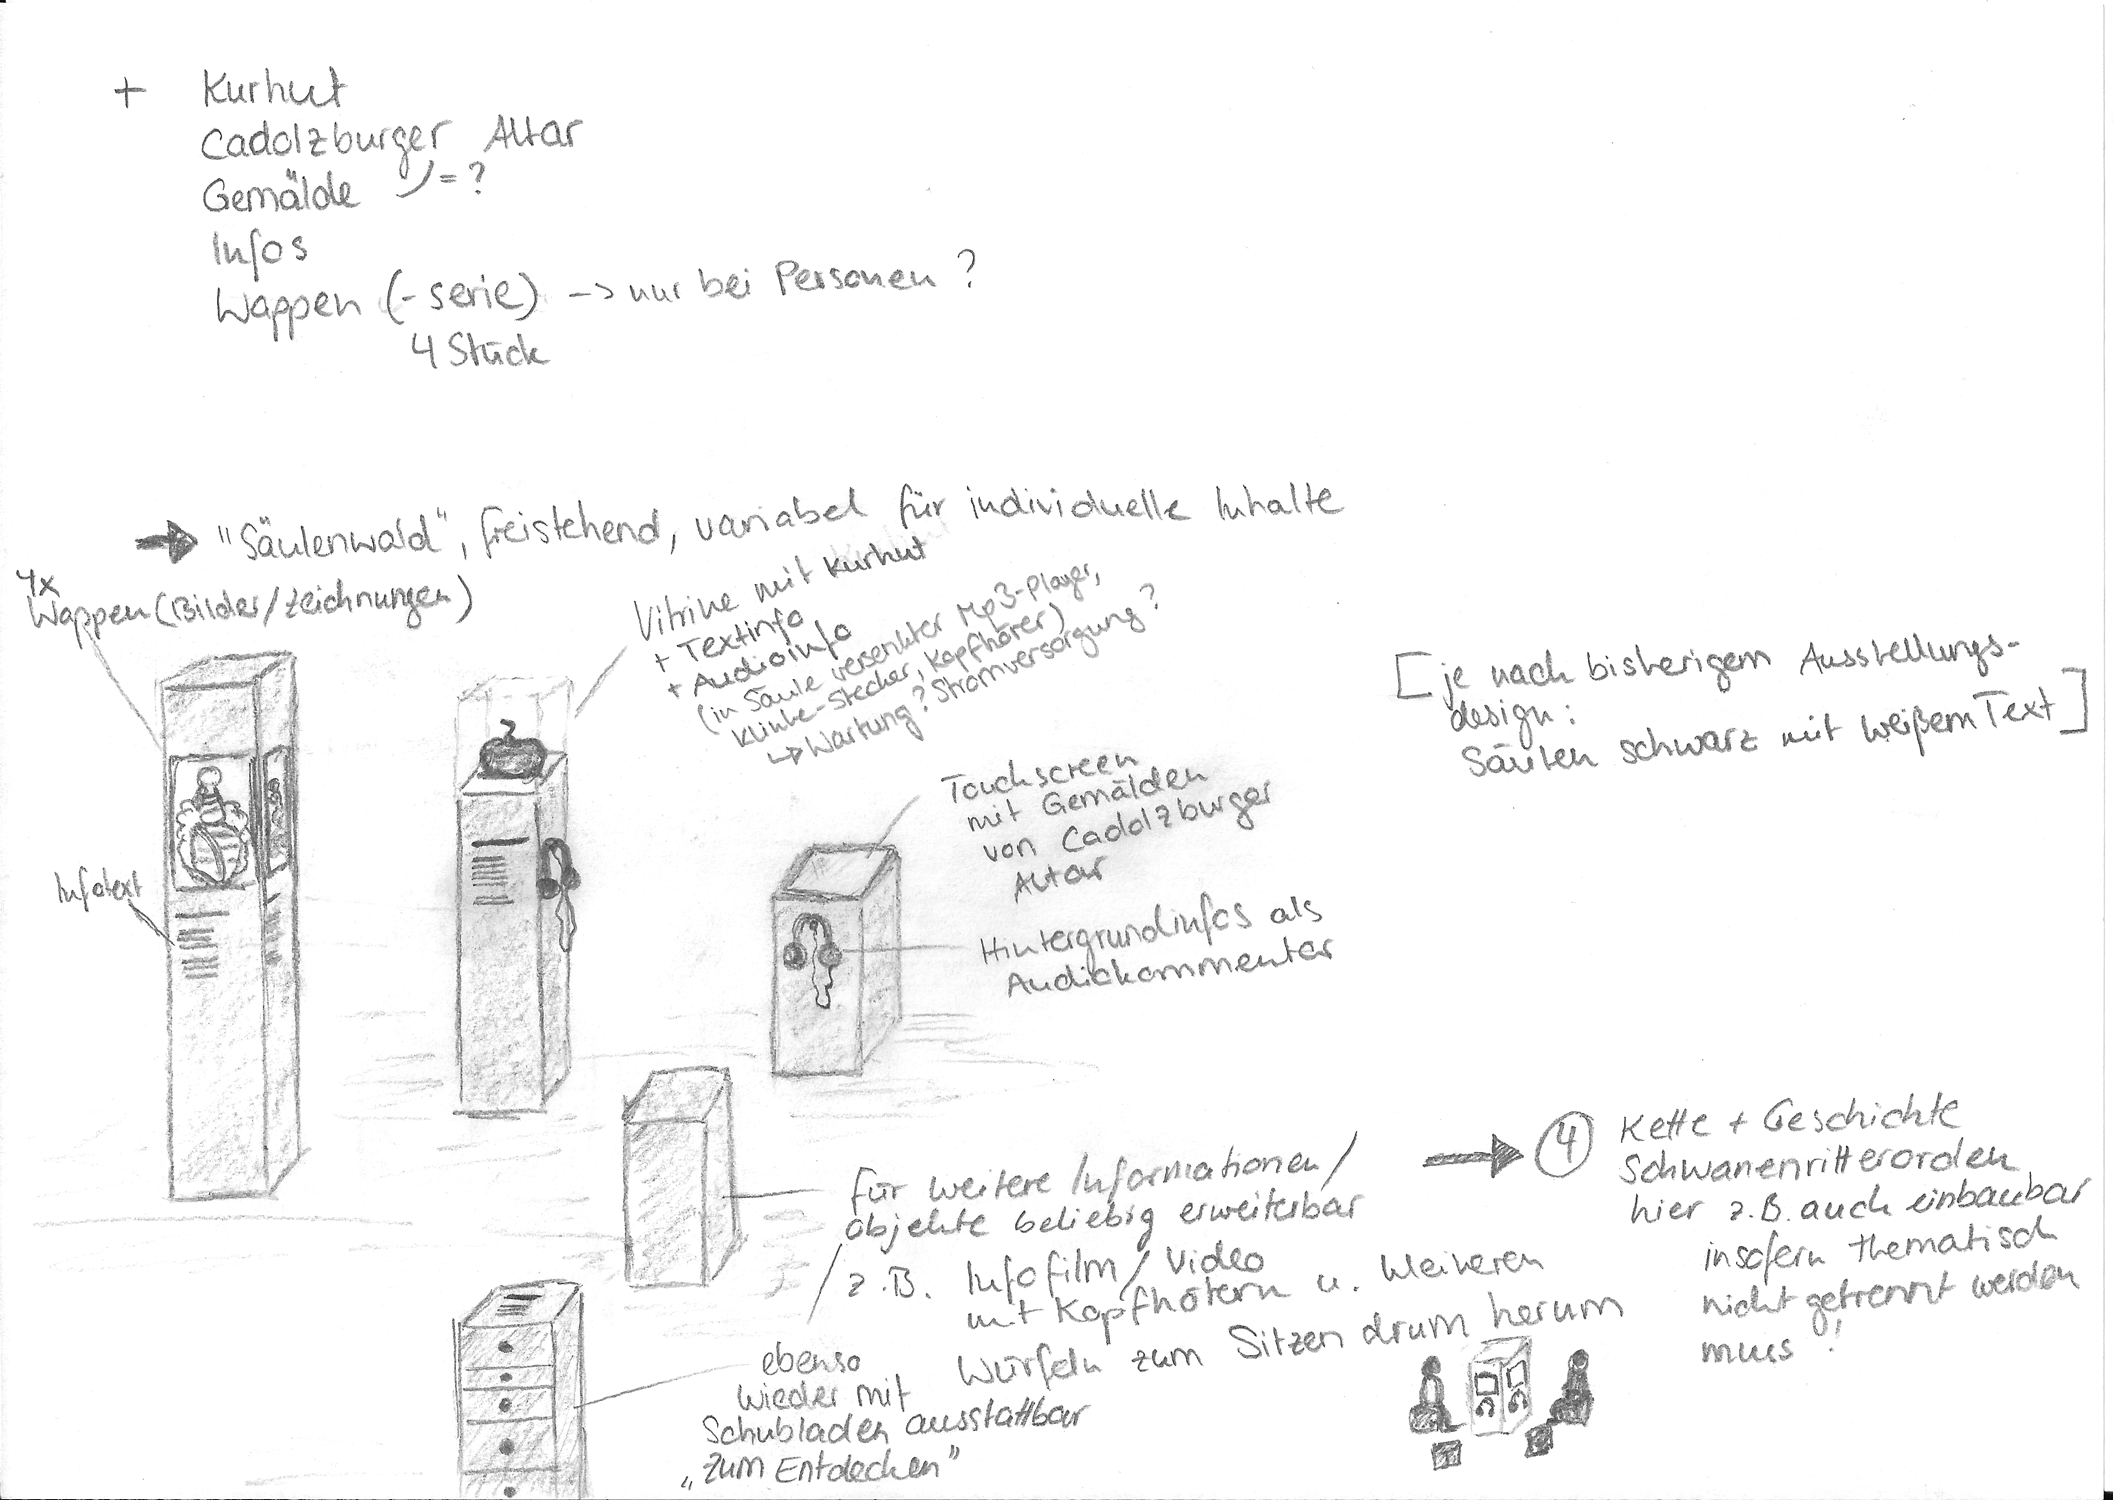 + Kurhut
Cadolzburger Altar
Gemälde =?
Infos
Wappen (-serie) -> nur bei Personen?
4 Stück
→ "Säulenwald", freistehend, variabel für individuelle Inhalte
4x
Wappen (Bilder/Zeichnungen)
Infotext
Vitrine mit Kurhut
+ Textinfo
+ Audioinfo
(in Säule versenkter Mp3-Player,
Klinke-stecker, Kopfhörer)
↳ Wartung? Stromversorgung?
[je nach bisherigem Ausstellungs-
design:
Säulen schwarz mit weißem Text]
Touchscreen
mit Gemälden
von Cadolzburger
Altar
Hintergrundinfos als
Audiokommentar
für weitere Informationen/
objekte beliebig erweiterbar
z.B. Infofilm/Video
mit Kopfhörern u. kleineren
Würfeln zum Sitzen drum herum
ebenso
wieder mit
Schubladen ausstattbar
„zum Entdecken"
→ 4 Kette + Geschichte
Schwanenritterorden
hier z.B. auch einbaubar
insofern thematisch
nicht getrennt werden
muss!